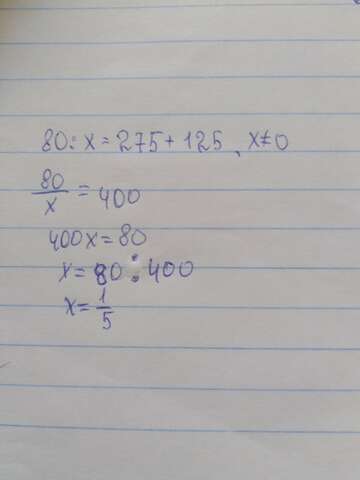 80:x=275+125, x≠0
80/x=400
400x=80
x=80:400
x=1/5